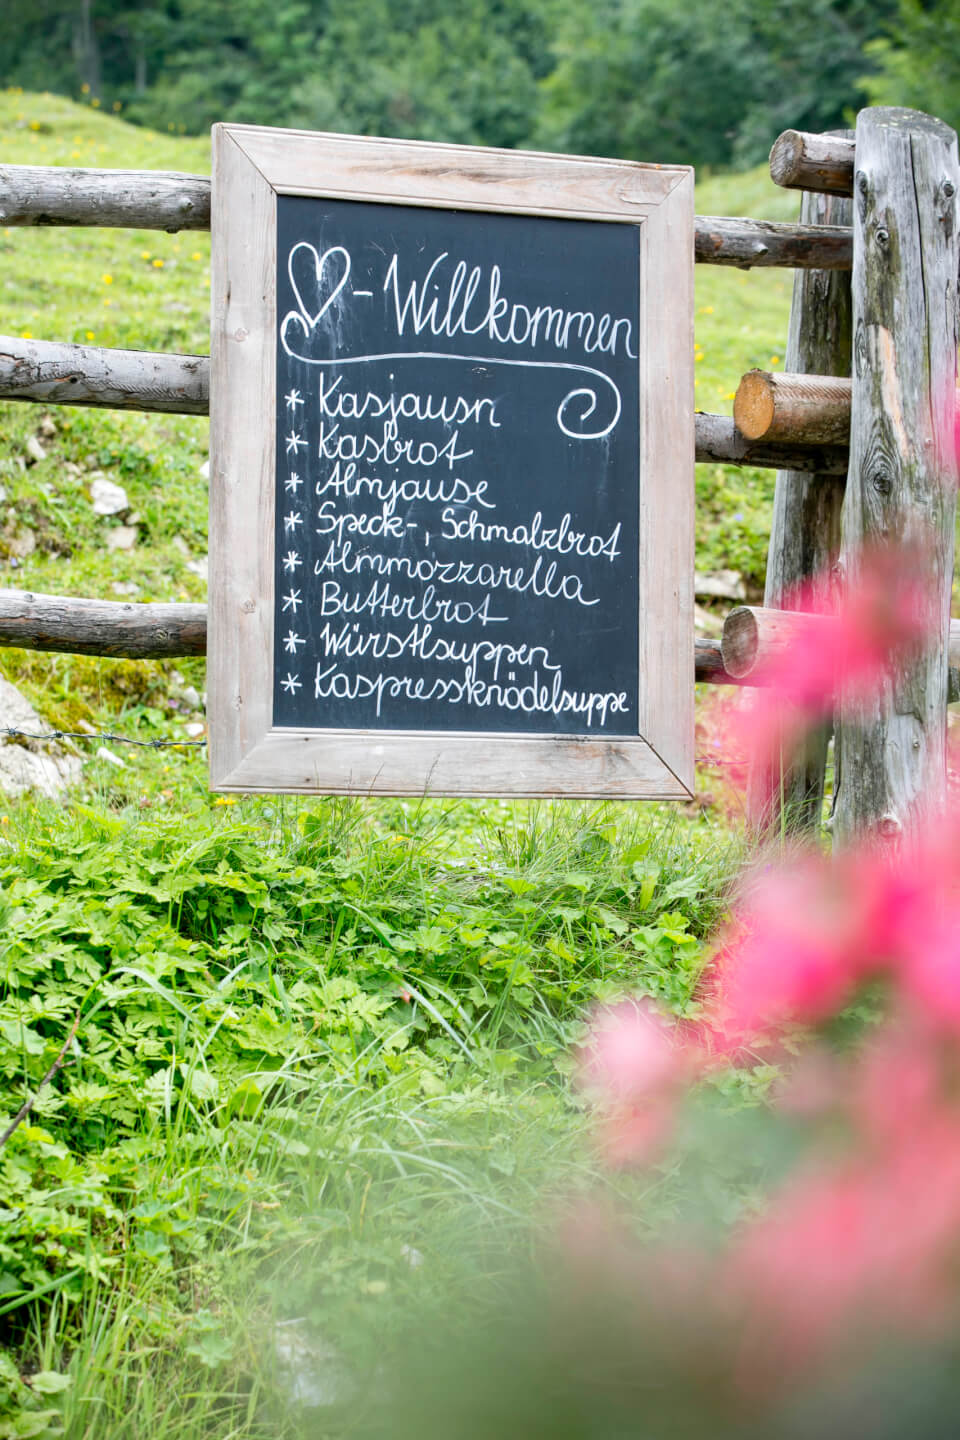 - Willkommen
* Kasjausn
* Kasbrot
* Almjause
* Speck-, Schmalzbrot
* Almmozzarella
* Butterbrot
* Würstlsuppen
* Kaspressknödelsuppe